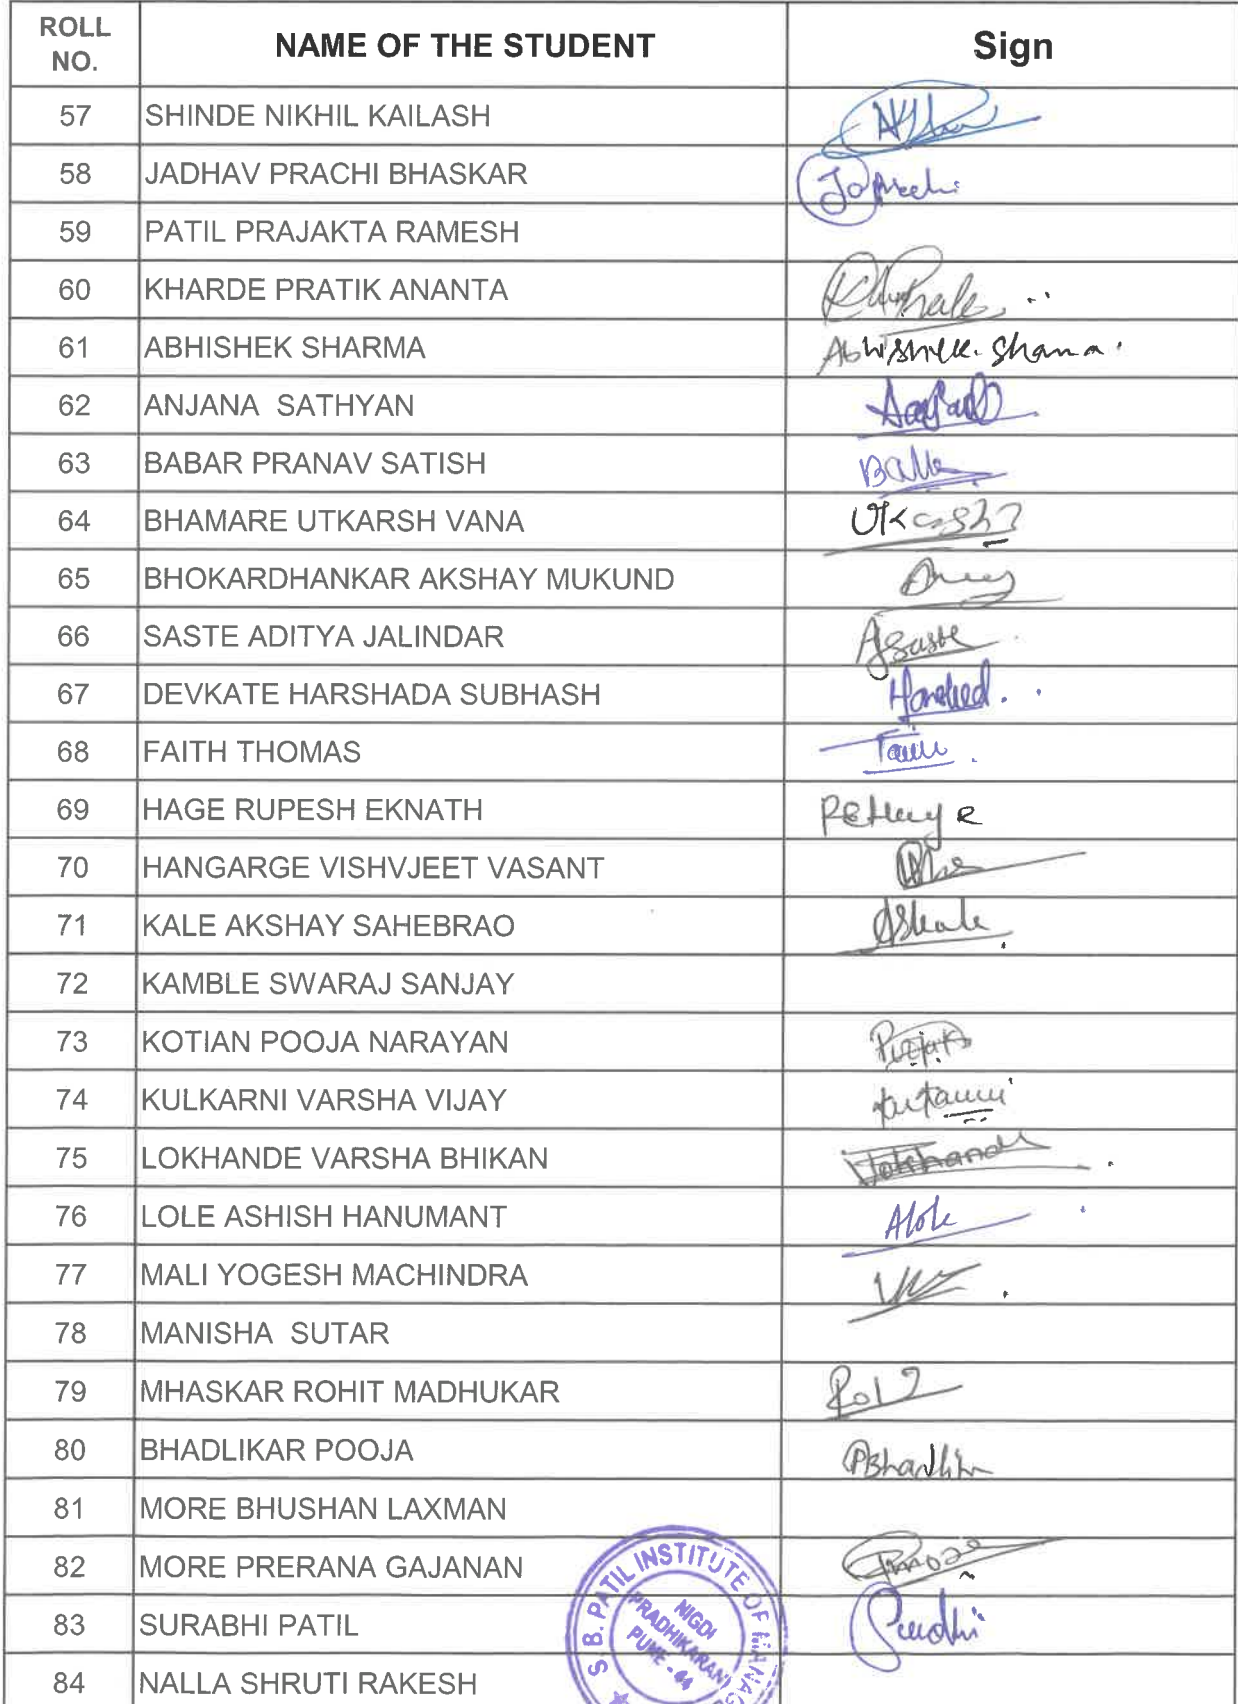 ROLL NO. NAME OF THE STUDENT Sign
57 SHINDE NIKHIL KAILASH
58 JADHAV PRACHI BHASKAR
59 PATIL PRAJAKTA RAMESH
60 KHARDE PRATIK ANANTA
61 ABHISHEK SHARMA Abhishek. Sharma.
62 ANJANA SATHYAN
63 BABAR PRANAV SATISH
64 BHAMARE UTKARSH VANA
65 BHOKARDHANKAR AKSHAY MUKUND
66 SASTE ADITYA JALINDAR ASaste
67 DEVKATE HARSHADA SUBHASH
68 FAITH THOMAS
69 HAGE RUPESH EKNATH
70 HANGARGE VISHVJEET VASANT
71 KALE AKSHAY SAHEBRAO ASKale
72 KAMBLE SWARAJ SANJAY
73 KOTIAN POOJA NARAYAN
74 KULKARNI VARSHA VIJAY
75 LOKHANDE VARSHA BHIKAN
76 LOLE ASHISH HANUMANT Alole
77 MALI YOGESH MACHINDRA
78 MANISHA SUTAR
79 MHASKAR ROHIT MADHUKAR
80 BHADLIKAR POOJA
81 MORE BHUSHAN LAXMAN
82 MORE PRERANA GAJANAN
83 SURABHI PATIL
84 NALLA SHRUTI RAKESH
S. B. PATIL INSTITUTE OF
NIGDI
PRADHIKARAN
PUNE - 44